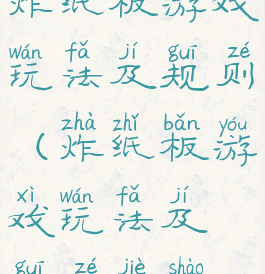 炸纸板游戏
wán fǎ jí guī zé
玩法及规则
zhà zhǐ bǎn yóu
(炸纸板游
xì wán fǎ jí
戏玩法及
guī zé jiè shào